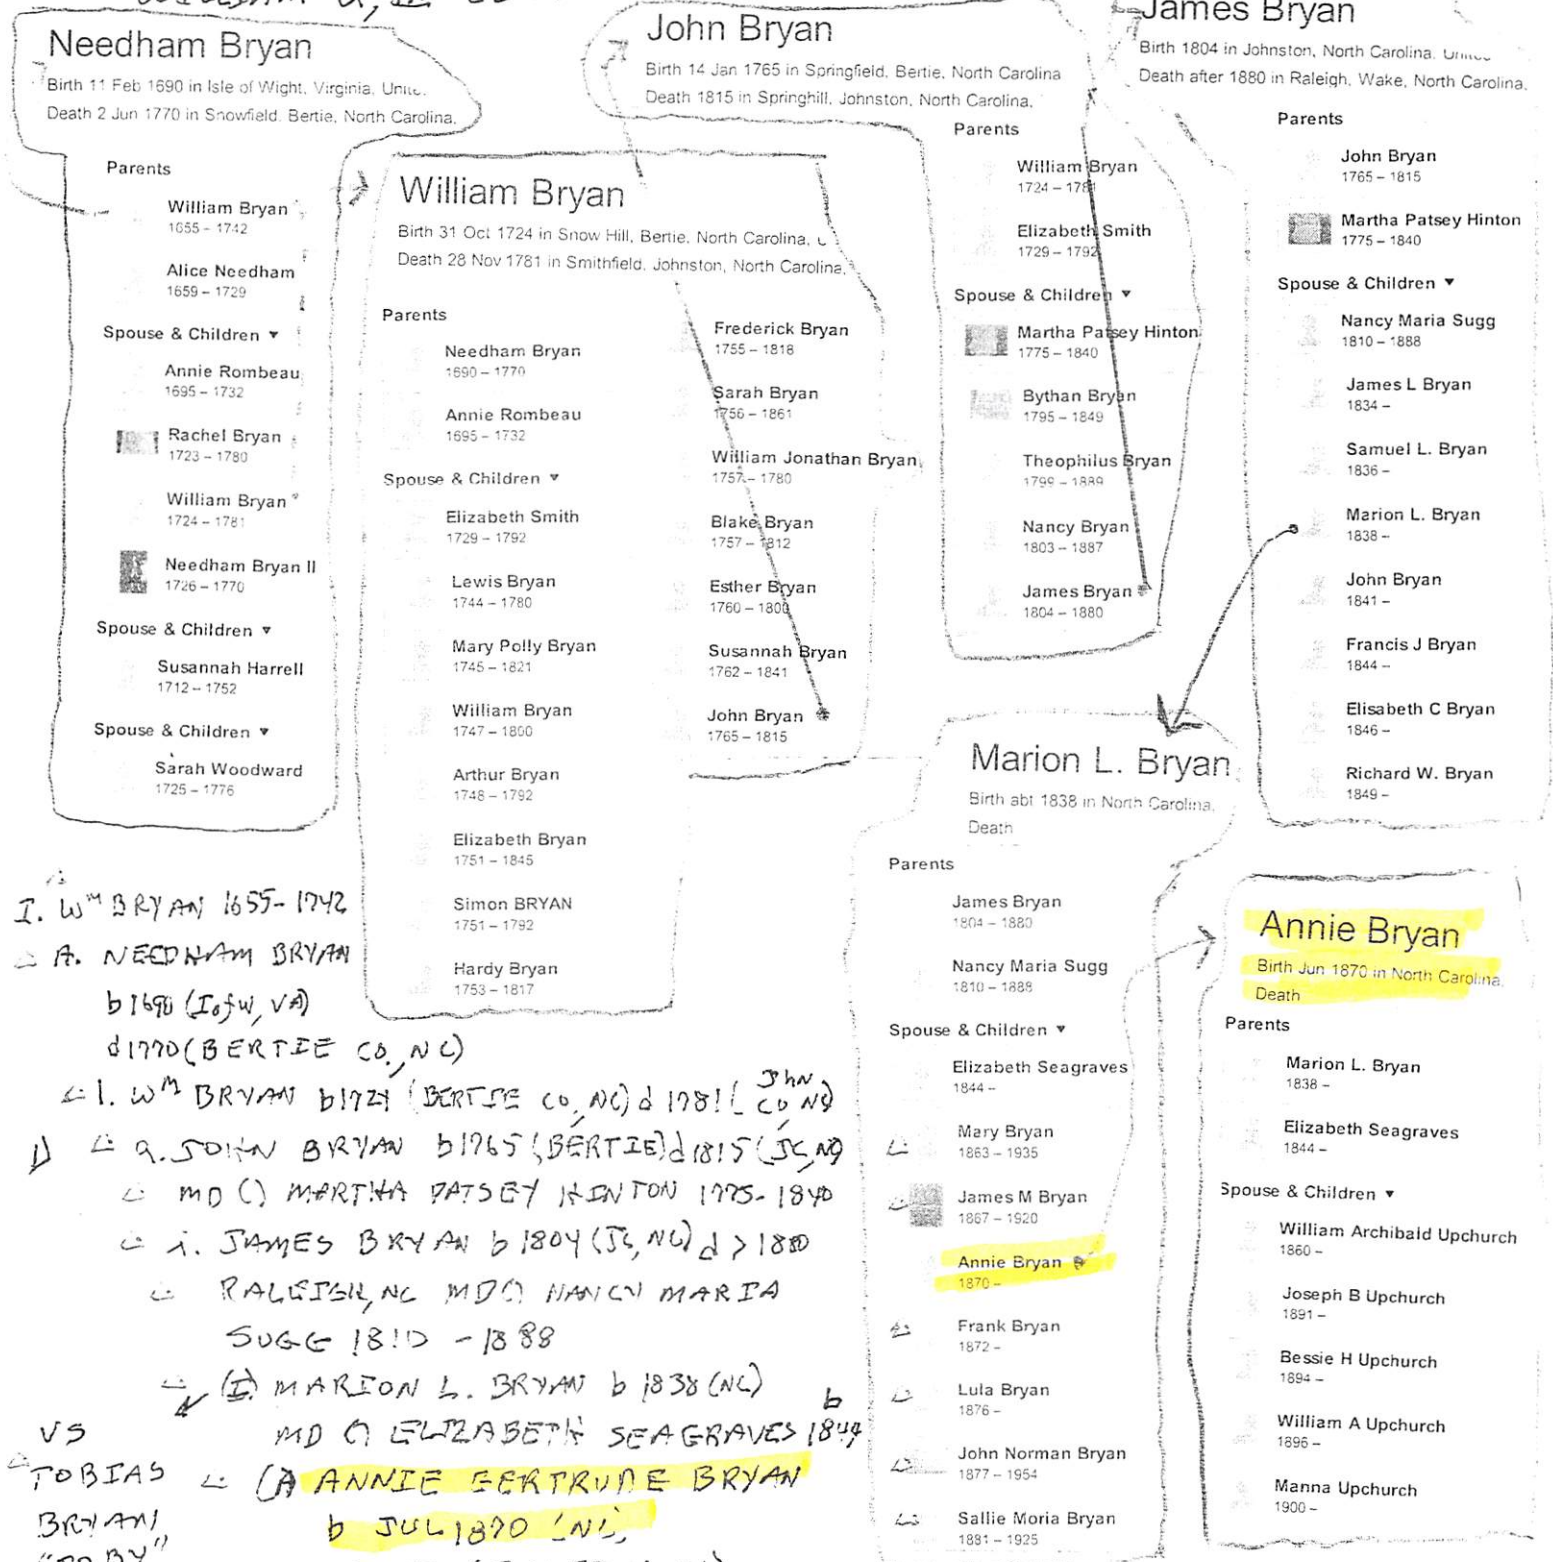 Needham Bryan
Birth 11 Feb 1690 in Isle of Wight, Virginia,
Death 2 Jun 1770 in Snowfield, Bertie, North Carolina,
Parents
William Bryan
1655 – 1742
Alice Needham
1659 – 1729
Spouse & Children ▾
Annie Rombeau
1695 – 1732
Rachel Bryan
1723 – 1780
William Bryan
1724 – 1781
Needham Bryan II
1726 – 1770
Spouse & Children ▾
Susannah Harrell
1712 – 1752
Spouse & Children ▾
Sarah Woodward
1725 – 1776
William Bryan
Birth 31 Oct 1724 in Snow Hill, Bertie, North Carolina,
Death 28 Nov 1781 in Smithfield, Johnston, North Carolina,
Parents
Needham Bryan
1690 – 1770
Annie Rombeau
1695 – 1732
Spouse & Children ▾
Elizabeth Smith
1729 – 1792
Lewis Bryan
1744 – 1780
Mary Polly Bryan
1745 – 1821
William Bryan
1747 – 1800
Arthur Bryan
1748 – 1792
Elizabeth Bryan
1751 – 1845
Simon BRYAN
1751 – 1792
Hardy Bryan
1753 – 1817
Frederick Bryan
1755 – 1818
Sarah Bryan
1756 – 1861
William Jonathan Bryan
1757 – 1780
Blake Bryan
1757 – 1812
Esther Bryan
1760 – 1800
Susannah Bryan
1762 – 1841
John Bryan
1765 – 1815
John Bryan
Birth 14 Jan 1765 in Springfield, Bertie, North Carolina
Death 1815 in Springhill, Johnston, North Carolina,
Parents
William Bryan
1724 – 1781
Elizabeth Smith
1729 – 1792
Spouse & Children ▾
Martha Patsey Hinton
1775 – 1840
Bythan Bryan
1795 – 1849
Theophilus Bryan
1799 – 1889
Nancy Bryan
1803 – 1887
James Bryan
1804 – 1880
James Bryan
Birth 1804 in Johnston, North Carolina,
Death after 1880 in Raleigh, Wake, North Carolina,
Parents
John Bryan
1765 – 1815
Martha Patsey Hinton
1775 – 1840
Spouse & Children ▾
Nancy Maria Sugg
1810 – 1888
James L Bryan
1834 –
Samuel L. Bryan
1836 –
Marion L. Bryan
1838 –
John Bryan
1841 –
Francis J Bryan
1844 –
Elisabeth C Bryan
1846 –
Richard W. Bryan
1849 –
Marion L. Bryan
Birth abt 1838 in North Carolina,
Death
Parents
James Bryan
1804 – 1880
Nancy Maria Sugg
1810 – 1888
Spouse & Children ▾
Elizabeth Seagraves
1844 –
Mary Bryan
1863 – 1935
James M Bryan
1867 – 1920
Annie Bryan
1870 –
Frank Bryan
1872 –
Lula Bryan
1876 –
John Norman Bryan
1877 – 1954
Sallie Moria Bryan
1881 – 1925
Annie Bryan
Birth Jun 1870 in North Carolina,
Death
Parents
Marion L. Bryan
1838 –
Elizabeth Seagraves
1844 –
Spouse & Children ▾
William Archibald Upchurch
1860 –
Joseph B Upchurch
1891 –
Bessie H Upchurch
1894 –
William A Upchurch
1896 –
Manna Upchurch
1900 –
I. Wᵐ BRYAN 1655-1742
A. NEEDHAM BRYAN
b 1690 (I of W, VA)
d 1770 (BERTIE CO, NC)
1. Wᵐ BRYAN b 1724 (BERTIE CO, NC) d 1781 (JOHN CO NC)
a. JOHN BRYAN b 1765 (BERTIE) d 1815 (JC, NC)
MD () MARTHA PATSEY HINTON 1775-1840
i. JAMES BRYAN b 1804 (JC, NC) d > 1880
RALEIGH, NC MD () NANCY MARIA
SUGG 1810 - 1888
(I) MARION L. BRYAN b 1838 (NC)
MD () ELIZABETH SEAGRAVES b 1844
(A) ANNIE GERTRUDE BRYAN
b JUL 1870 (NC)
VS
TOBIAS
BRYAN
"TOBY"